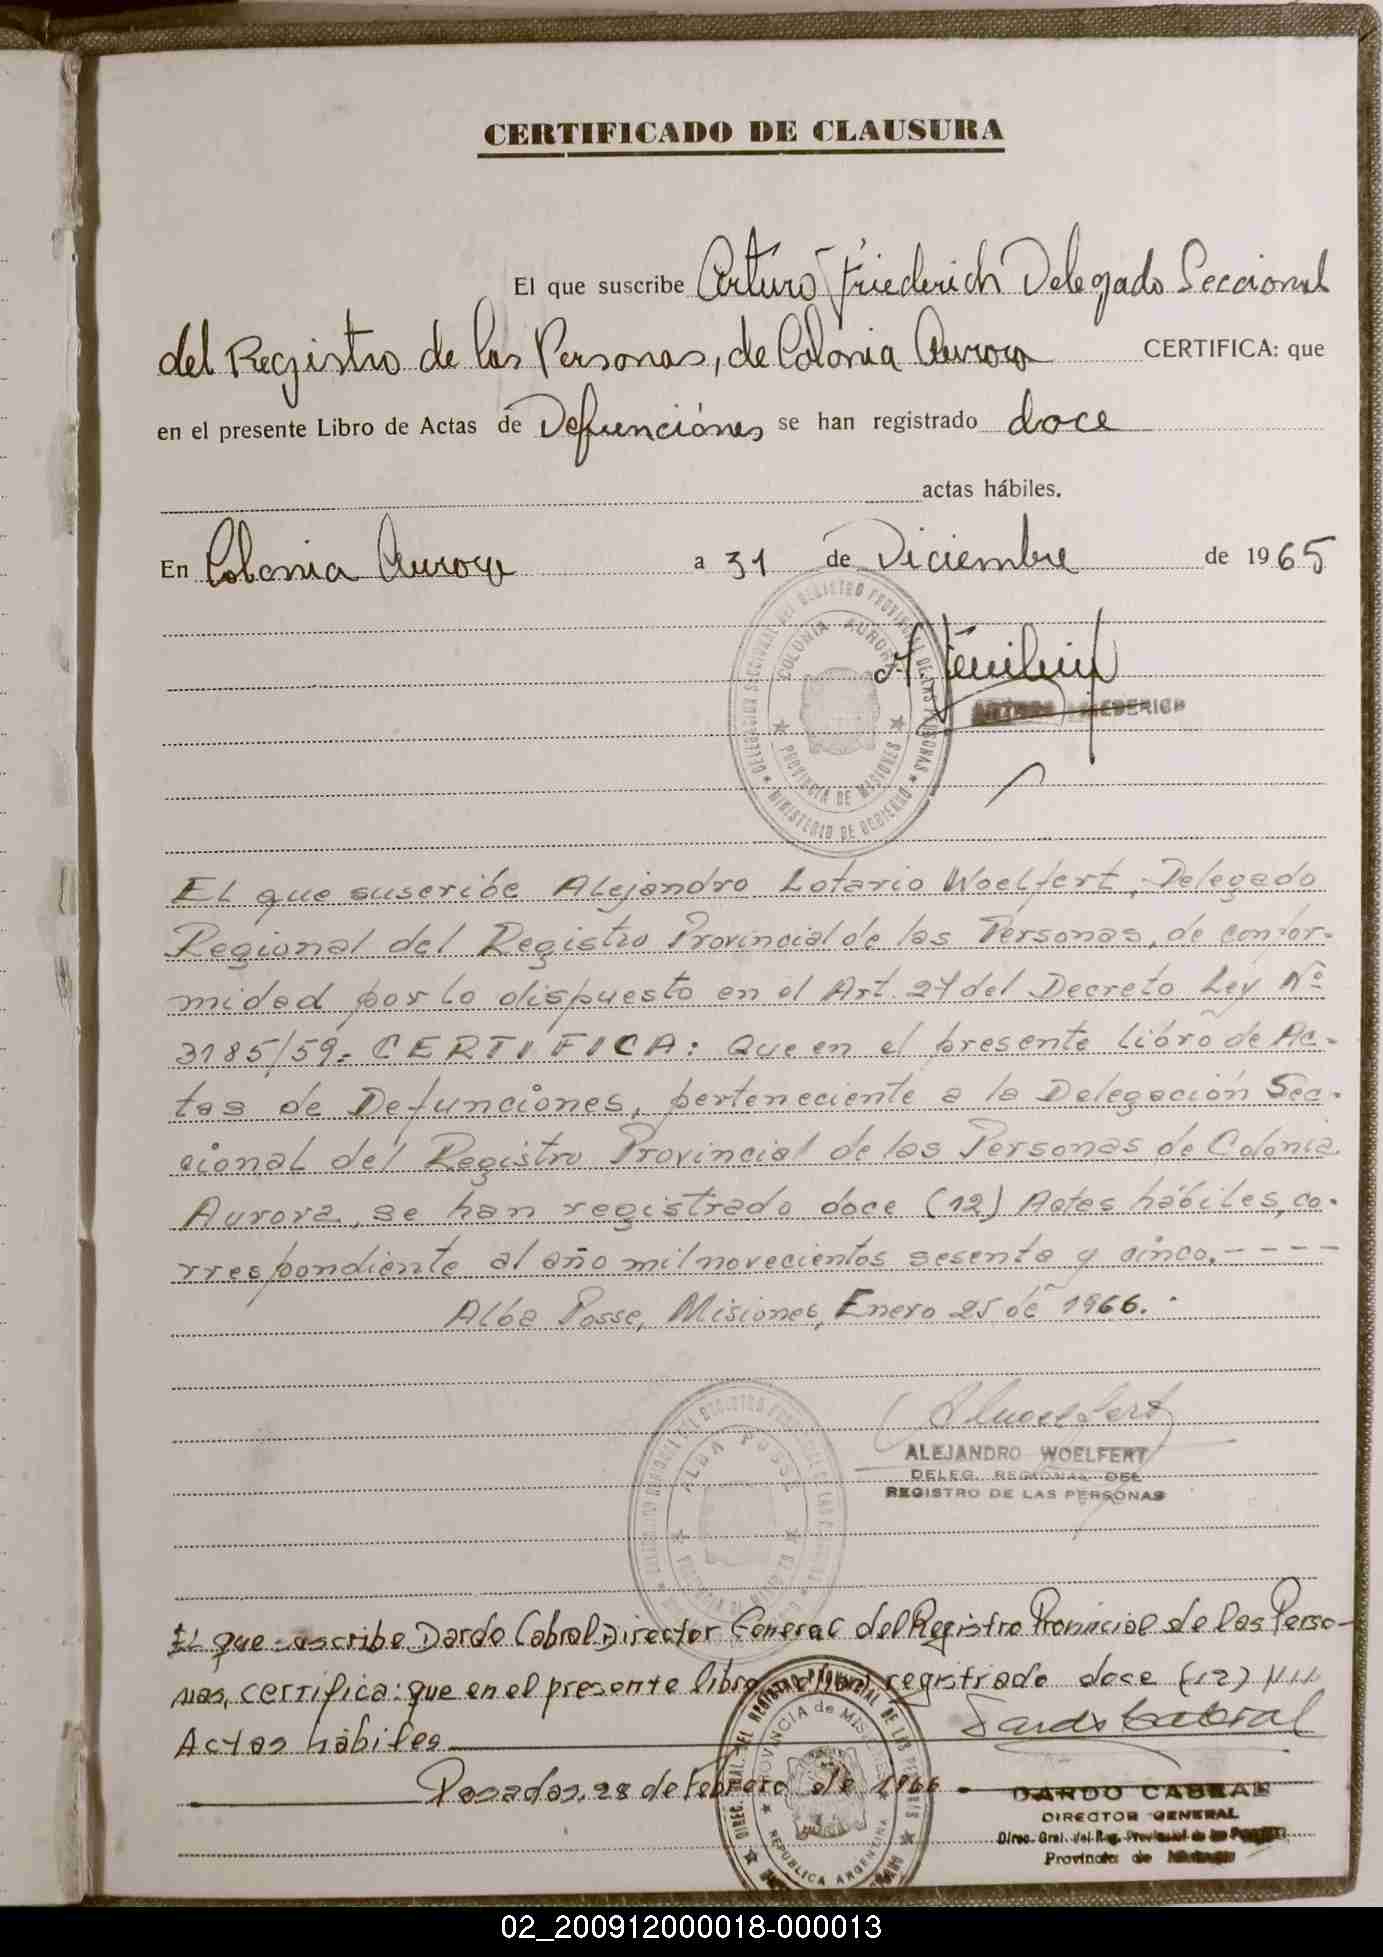 CERTIFICADO DE CLAUSURA
El que suscribe Arturo Friederich Delegado Seccional
del Registro de las Personas, de Colonia Aurora CERTIFICA: que
en el presente Libro de Actas de Defunciónes se han registrado doce
actas hábiles.
En Colonia Aurora a 31 de Diciembre de 1965
DELEGACION SECCIONAL DEL REGISTRO PROVINCIAL DE LAS PERSONAS
COLONIA AURORA
PROVINCIA DE MISIONES
MINISTERIO DE GOBIERNO
ARTURO FRIEDERICH
El que suscribe Alejandro Lotario Woelfert, Delegado
Regional del Registro Provincial de las Personas, de confor-
midad por lo dispuesto en el Art. 27 del Decreto Ley Nº
3185/59= CERTIFICA: Que en el presente libro de Ac-
tas de Defunciones, perteneciente a la Delegación Sec-
cional del Registro Provincial de las Personas de Colonia
Aurora, se han registrado doce (12) Actas hábiles, co-
rrespondiente al año mil novecientos sesenta y cinco.----
Alba Posse, Misiones, Enero 25 de 1966.
ALBA POSSE
AWoelfert
ALEJANDRO WOELFERT
DELEG. REGIONAL DEL
REGISTRO DE LAS PERSONAS
El que suscribe Dardo Cabral Director General del Registro Provincial de las Perso-
nas, certifica: que en el presente libro se han registrado doce (12)
Actas hábiles
Dardo Cabral
Posadas, 28 de Febrero de 1966
DIREC. GRAL. DEL REGISTRO PROVINCIAL DE LAS PERSONAS
PROVINCIA de MISIONES
REPUBLICA ARGENTINA
DARDO CABRAL
DIRECTOR GENERAL
Direc. Gral. del Reg. Provincial de las
Provincia de
02_200912000018-000013